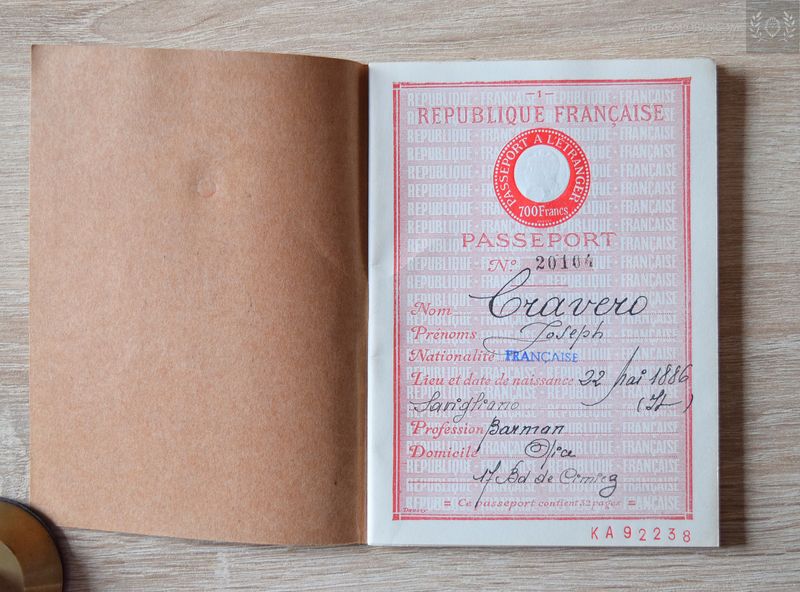 - 1 -
REPUBLIQUE FRANÇAISE
PASSEPORT A L'ÉTRANGER
700 Francs
PASSEPORT
N° 20104
Nom Cravero
Prénoms Joseph
Nationalité FRANÇAISE
Lieu et date de naissance 22 Mai 1886
Savigliano (It)
Profession Barman
Domicile Nice
17 Bd de Cimiez
= Ce passeport contient 32 pages =
KA92238